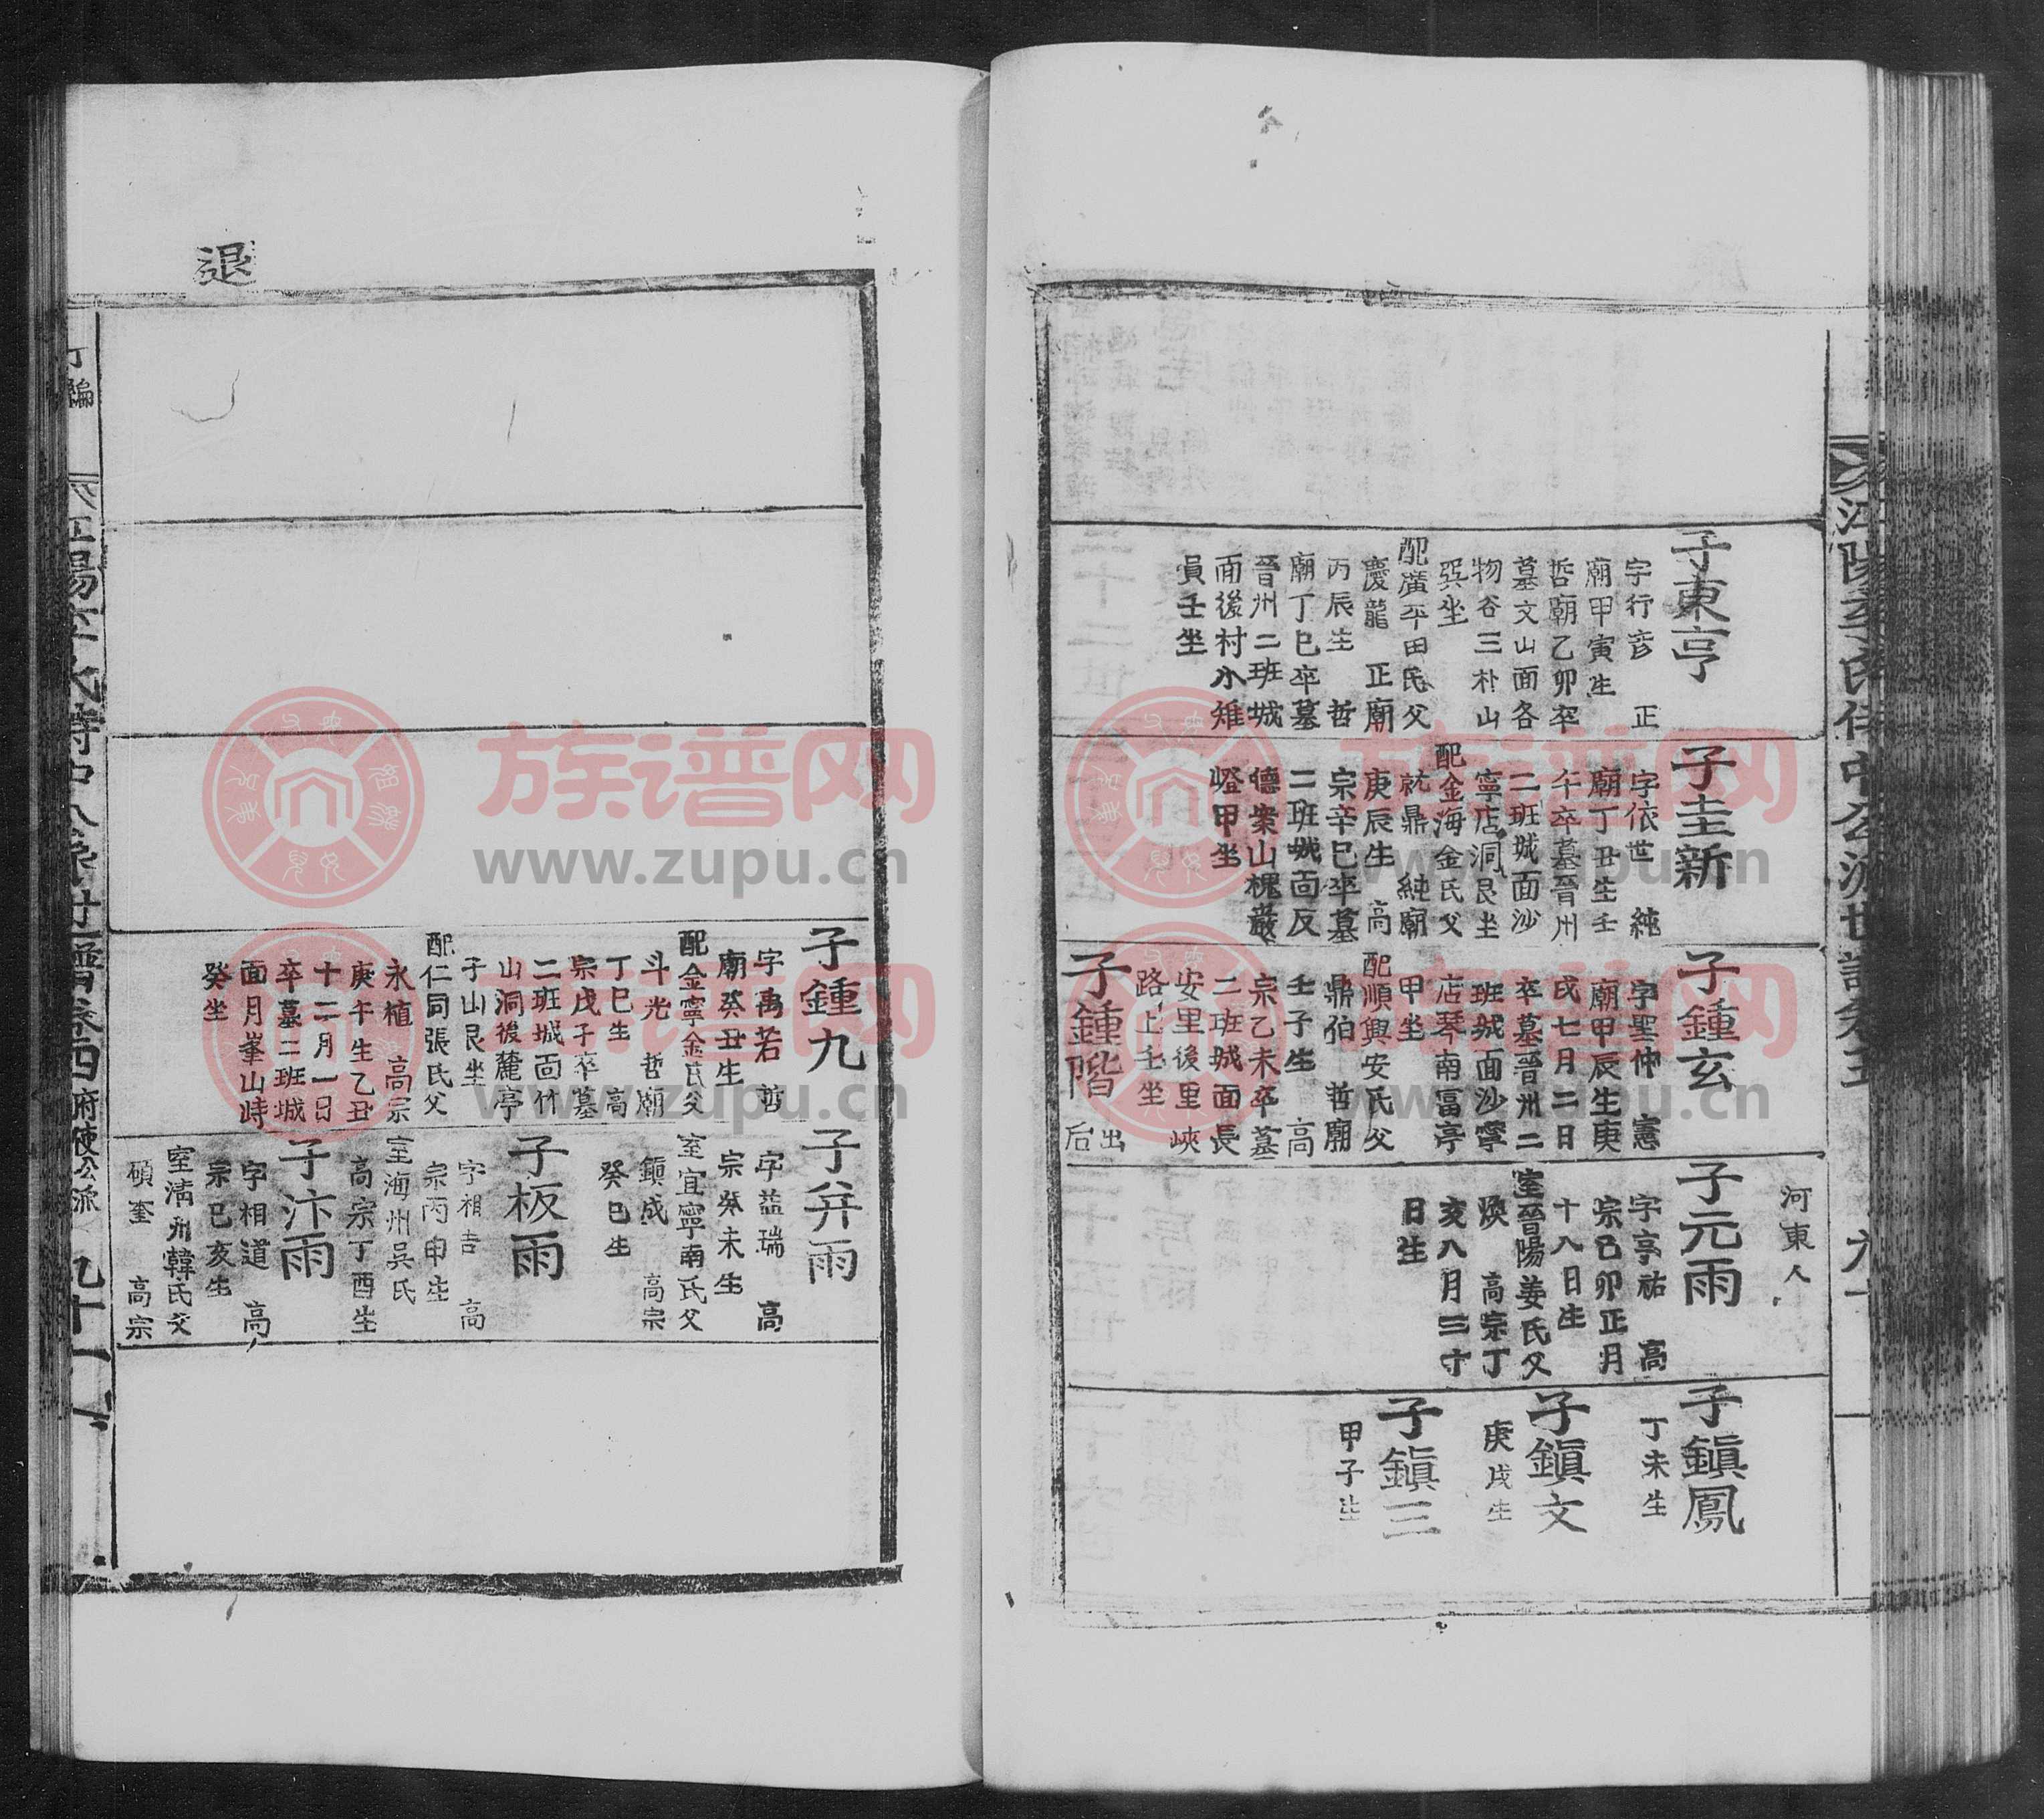 子東亨
字行彦 正
廟甲寅生
哲廟乙卯卒
墓文山面各
物谷三朴山
巽坐
配廣平田氏父
慶龍 正廟
丙辰生 哲
廟丁巳卒墓
晉州二班城
面後村小雉
員壬坐
子圭新
字依世 純
廟丁丑生壬
午卒墓晉州
二班城面沙
寧店洞艮坐
配金海金氏父
就鼎 純廟
庚辰生 高
宗辛巳卒墓
二班城面反
德案山槐巖
嶝甲坐
子鍾玄
字聖仲 憲
廟甲辰生庚
戌七月二日
卒墓晉州二
班城面沙寧
店琴南富亭
甲坐
配順興安氏父
鼎伯 哲廟
壬子生 高
宗乙未卒墓
二班城面長
安里後里峽
路上壬坐
子鍾階
出后
河東人
子元雨
字亨祐 高
宗己卯正月
十八日生
室晉陽姜氏父
煥 高宗丁
亥八月三十
日生
子鎭鳳
丁未生
子鎭文
庚戌生
子鎭三
甲子生
退
子鍾九
字禹若 哲
廟癸丑生
配金寧金氏父
斗光 哲廟
丁巳生 高
宗戊子卒墓
二班城面竹
山洞後麓亭
子山艮坐
配仁同張氏父
永植 高宗
庚午生乙丑
十二月一日
卒墓二班城
面月峯山峙
癸坐
子弁雨
字益瑞 高
宗癸未生
室宜寧南氏父
鎭成 高宗
癸巳生
子板雨
字相吉 高
宗丙申生
室海州吳氏
高宗丁酉生
子汴雨
字相道 高
宗己亥生
室淸州韓氏父
碩奎 高宗
府使公派
九十一
族谱网
www.zupu.cn
族谱网
www.zupu.cn
族谱网
www.zupu.cn
族谱网
www.zupu.cn